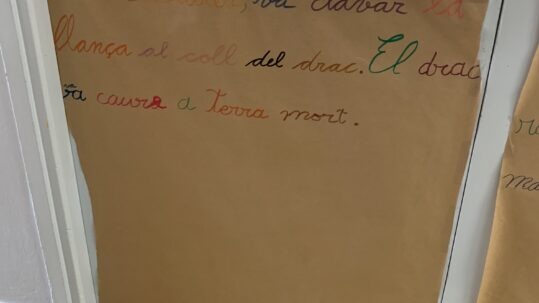 va clavar la
llança al coll del drac. El drac
va caure a terra mort.